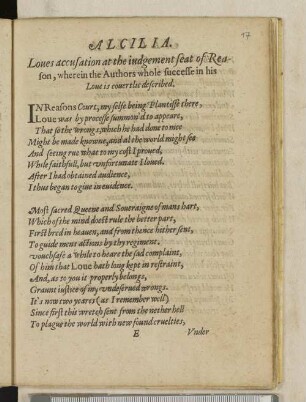 17
ALCILIA.
Loues accusation at the iudgement seat of Rea-
son, wherein the Authors whole successe in his
Loue is couertlie described.
IN Reasons Court, my selfe being Plantiffe there,
Loue was by processe summon'd to appeare,
That so the wrongs, which he had done to mee
Might be made knowne, and al the world might see
And seeing rue what to my cost I proued,
While faithfull, but vnfortunate I loued.
After I had obtained audience,
I thus began to giue in euidence.
Most sacred Queene and Soueraigne of mans hart,
Which of the mind doest rule the better part,
First bred in heauen, and from thence hither sent,
To guide mens actions by thy regiment.
vouchsafe a while to heare the sad complaint,
Of him that Loue hath long kept in restraint,
And, as to you it properly belongs,
Graunt iustice of my vndeserued wrongs.
It's now two yeares (as I remember well)
Since first this wretch sent from the nether hell
To plague the world with new found cruelties,
E Vnder